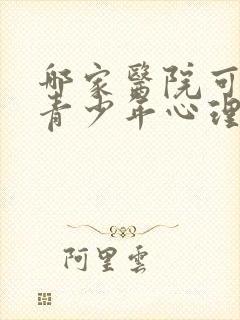 哪家醫院可
青少年心理
阿里雲